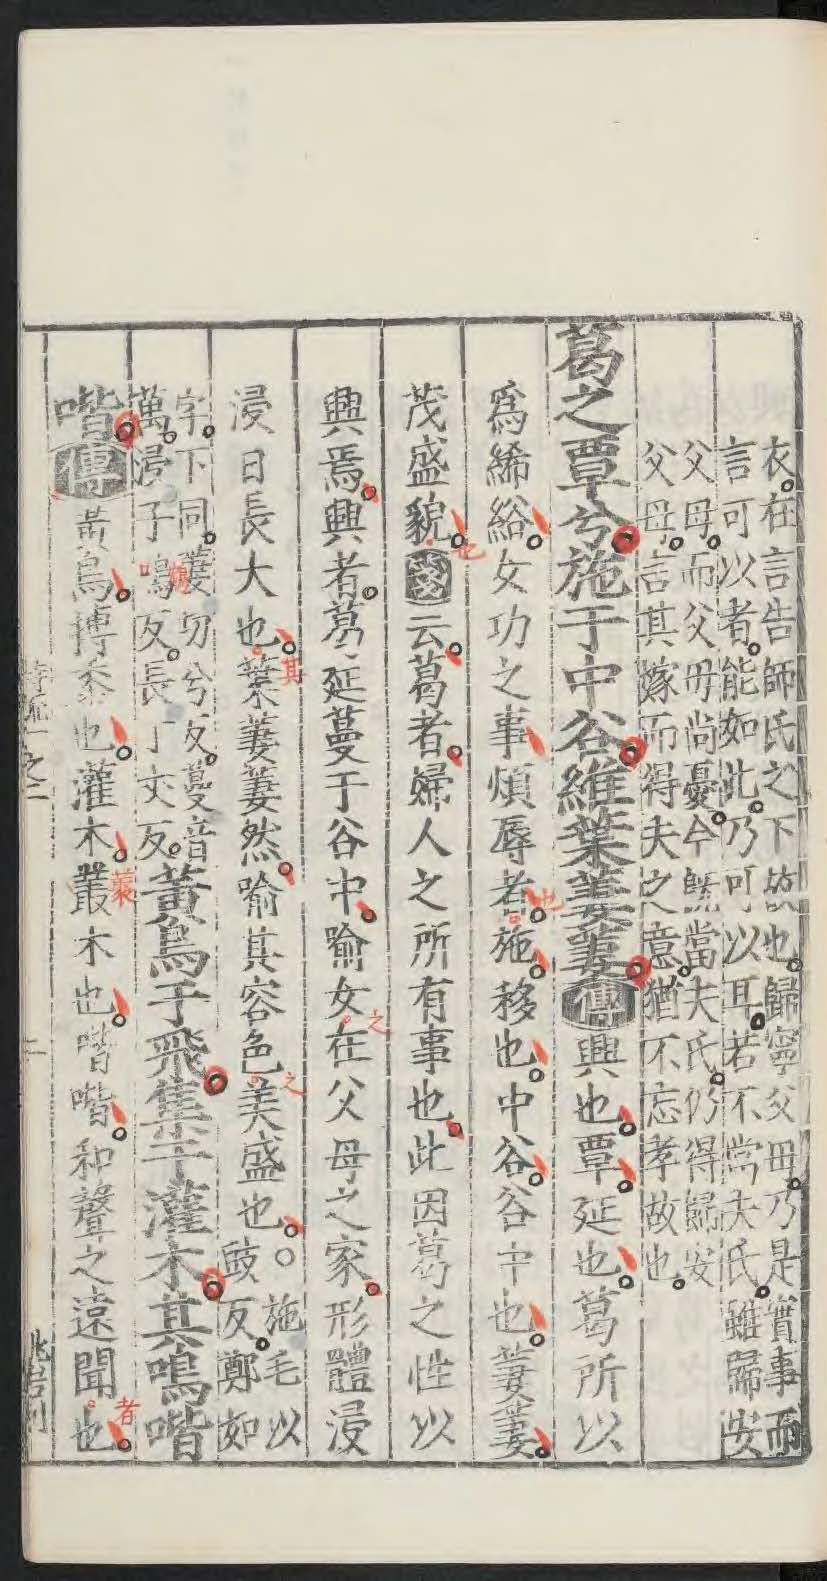 衣在言告師氏之下故也歸寧父母乃是實事而
言可以者能如此乃可以耳若不當夫氏雖歸安
父母而父母尚憂今旣當夫氏仍得歸安
父母言其嫁而得夫之意猶不忘孝故也
葛之覃兮施于中谷維葉萋萋傳興也覃延也葛所以
爲絺綌女功之事煩辱者施移也中谷谷中也萋萋
也
茂盛貌箋云葛者婦人之所有事也此因葛之性以
也
興焉興者葛延蔓于谷中喻女在父母之家形體浸
之
浸日長大也葉萋萋然喻其容色美盛也○施毛以
豉反鄭如
其
之
字下同萋切兮反蔓音
萬浸子鳴反長丁丈反黃鳥于飛集于灌木其鳴喈
鴆
喈傳黃鳥搏黍也灌木叢木也喈喈和聲之遠聞也
藂
者